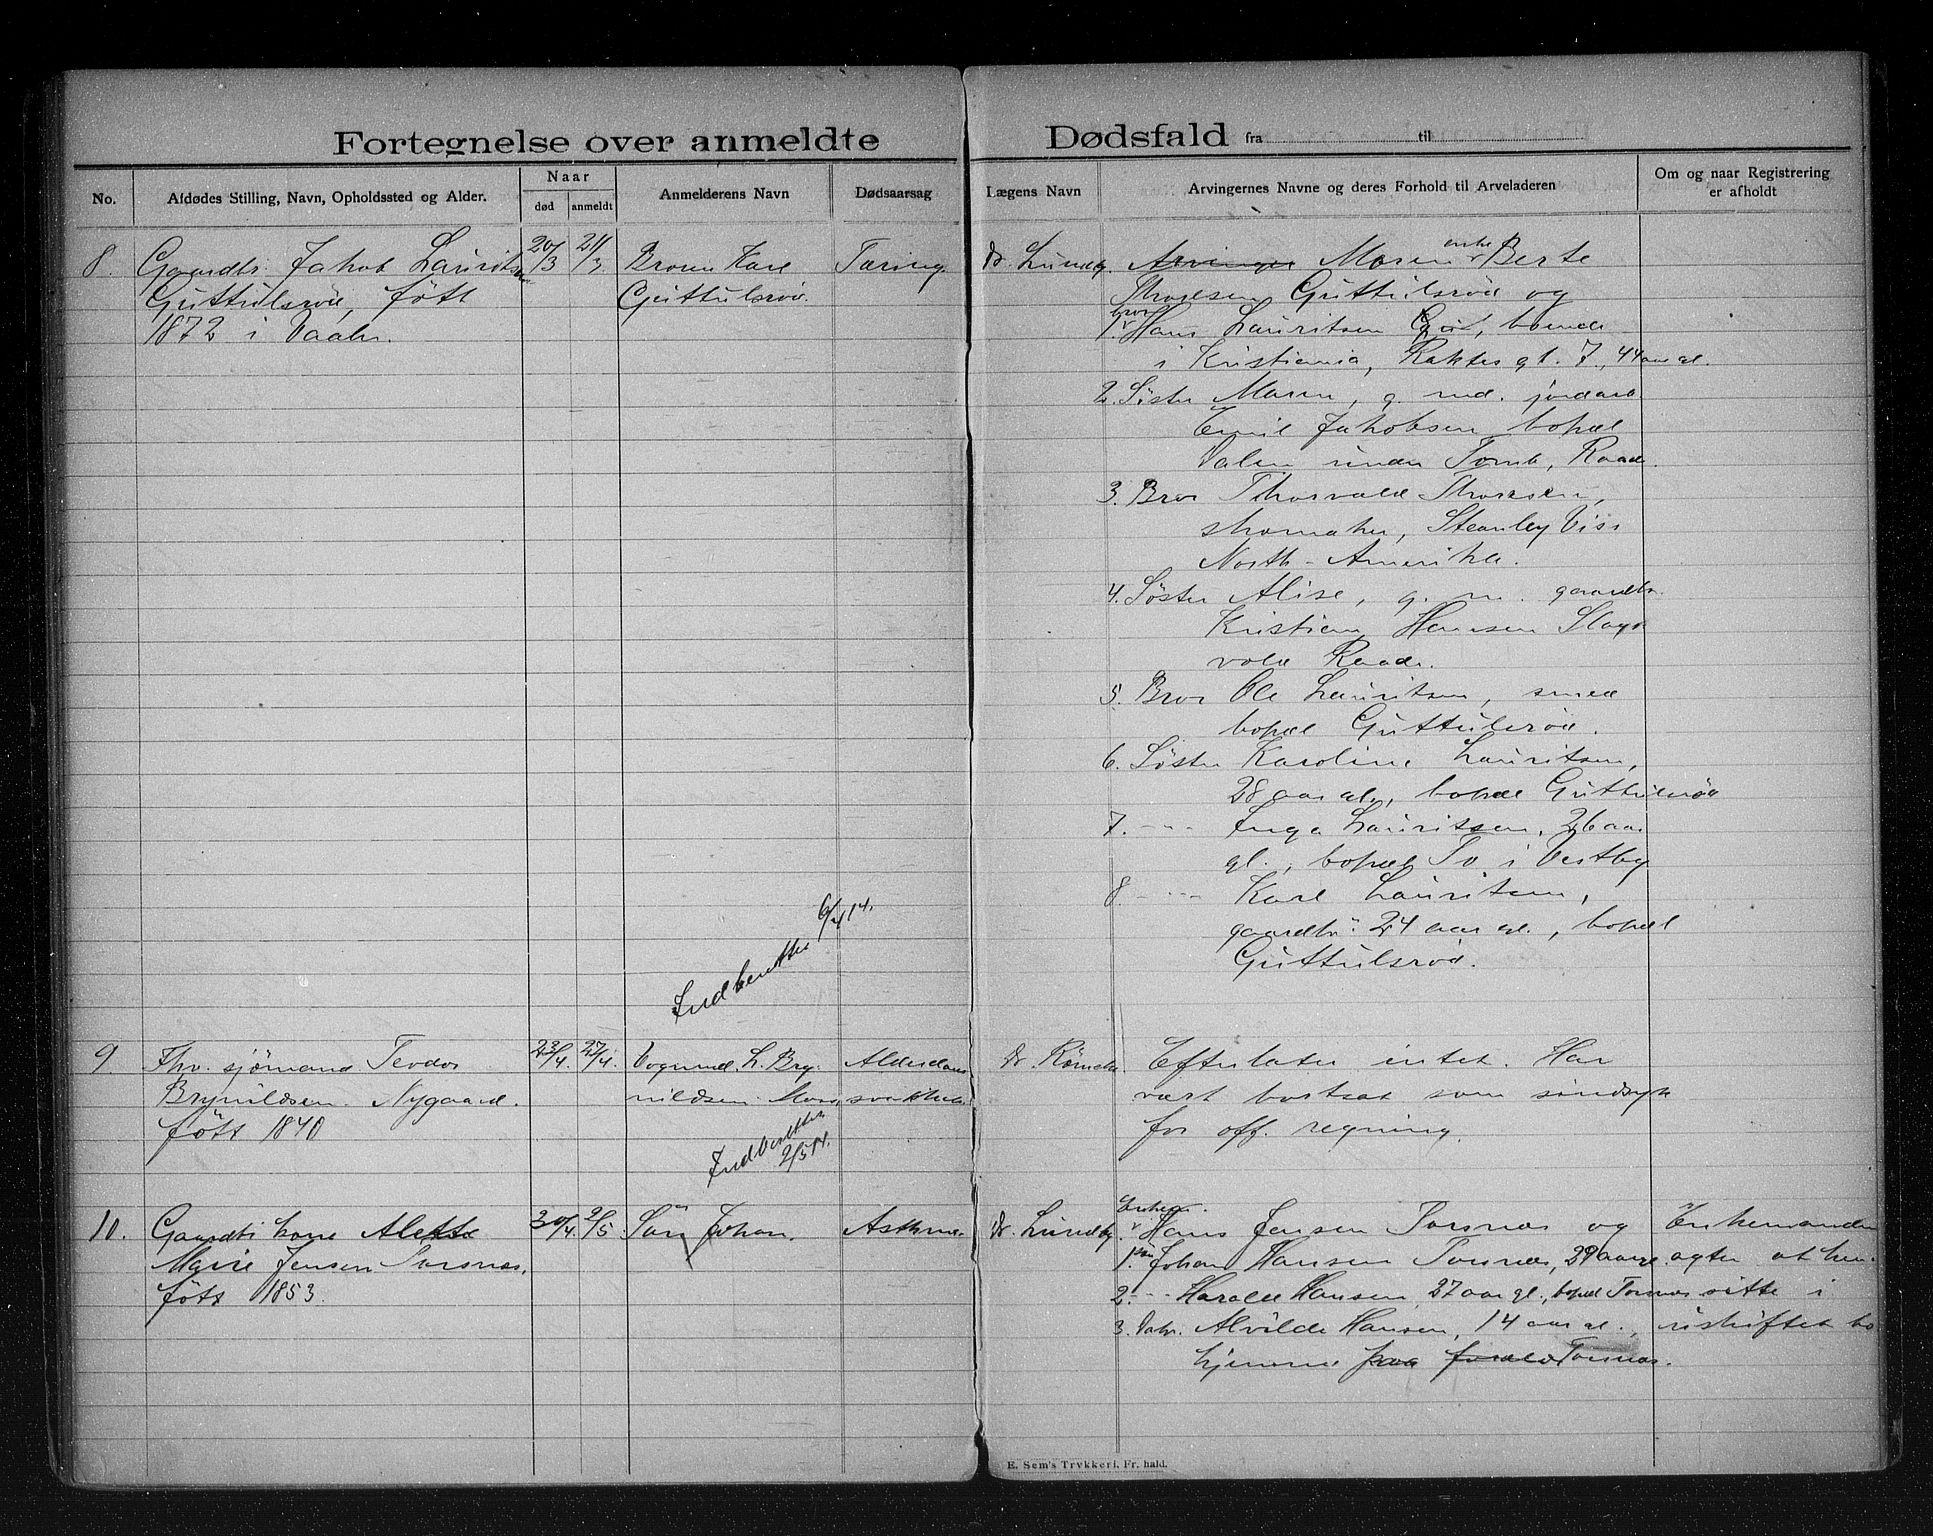 Fortegnelse over anmeldte Dødsfald fra til
No.
Afdødes Stilling, Navn, Opholdssted og Alder.
Naar
død
anmeldt
Anmelderens Navn
Dødsaarsag
Lægens Navn
Arvingernes Navne og deres Forhold til Arveladeren
Om og naar Registrering
er afholdt
8. Gaardbr. Jakob Lauritsen
Guttulsrød, født
1872 i Vaaler.
20/3
21/3
Broren Karl
Guttulsrød.
Tæring.
Dr. Lundby.
Arvinger Moren enke Berte
Thoresen Guttulsrød og
1. bror Hans Lauritsen boende
i Kristiania, gt. 7, 44 aar gl.
2. Søster Maren, g. med. jordarb.
Emil Jakobsen bopæl
Dalen under Tomb, Raade.
3. Bror Thorvald Thoresen,
skomaker, Stanley Viss
North-Amerika.
4. Søster Alise, g. m. gaardbr.
Kristian Hansen Slags
vold Raade.
5. Bror Ole Lauritsen, smed
bopæl Guttulsrød.
6. Søster Karoline Lauritsen,
28 aar gl., bopæl Guttulsrød
7. -"- Inga Lauritsen, 26 aar
gl., bopæl So i Vestby
8. -"- Karl Lauritsen,
gaardbr. 24 aar gl., bopæl
Guttulsrød.
Indberettet 6/4 14.
9. Fhv. sjømand Teodor
Brynildsen Nygaard.
født 1840
23/4.
27/4.
L. Bry-
nildsen Moss
Alderdoms
svakhet.
Indberettet
2/5 14.
Dr.
Efterlater intet. Har
vært bortsat som sindsyk
for off. regning.
10. Gaardbr. kone Alette
Marie Jensen Torsnæs,
født 1853.
30/4.
2/5.
Søn Johan.
Asthma.
Dr. Lundby
Enkem.
Hans Jensen Torsnæs og
1. Johan Hansen Torsnæs, 29 aar gl.
2. -"- Harald Hansen, 27 aar gl., bopæl Torsnæs
3. Datr. Alvilde Hansen, 14 aar gl.,
hjemme paa Torsnæs.
Enkemanden
agter at hen-
sitte i
uskiftet bo
E. Sem's Trykkeri, Fr. hald.